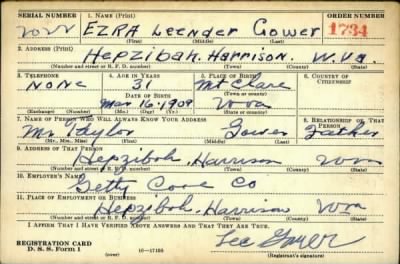 SERIAL NUMBER 1. NAME (Print) ORDER NUMBER
EZRA Leender Gower 1734
(First) (Middle) (Last)
2. ADDRESS (Print)
Hepzibah. Harrison. W.Va.
(Number and street or R. F. D. number) (Town) (County) (State)
3. TELEPHONE 4. AGE IN YEARS 5. PLACE OF BIRTH 6. COUNTRY OF CITIZENSHIP
NONE 31 Mt Clare
DATE OF BIRTH (Town or county)
Mar 16. 1909 Wva
(Exchange) (Number) (Mo.) (Day) (Yr.) (State or country)
7. NAME OF PERSON WHO WILL ALWAYS KNOW YOUR ADDRESS 8. RELATIONSHIP OF THAT PERSON
Mr Taylor Gower Father
(Mr., Mrs., Miss) (First) (Middle) (Last)
9. ADDRESS OF THAT PERSON
Hepzibah. Harrison Wva
(Number and street or R. F. D. number) (Town) (County) (State)
10. EMPLOYER'S NAME
Getty Coal Co
11. PLACE OF EMPLOYMENT OR BUSINESS
Hepzibah. Harrison Wva
(Number and street or R. F. D. number) (Town) (County) (State)
I AFFIRM THAT I HAVE VERIFIED ABOVE ANSWERS AND THAT THEY ARE TRUE.
REGISTRATION CARD
D. S. S. Form 1 16—17105 Lee Gower
(Registrant's signature)